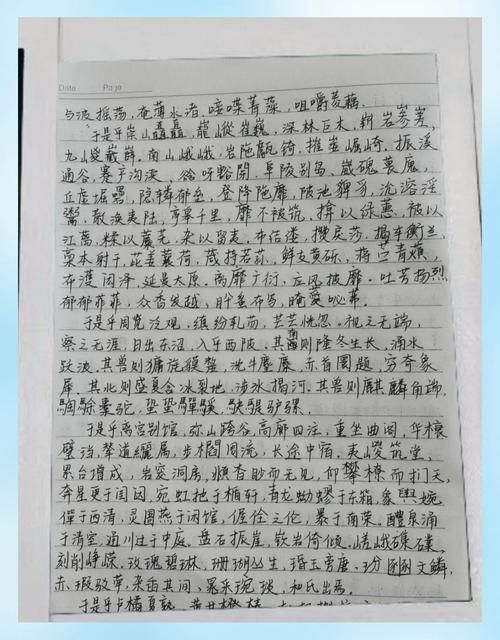 Date Page
与波摇荡,奄薄水渚,唼喋菁藻,咀嚼菱藕.
于是乎崇山矗矗,巃嵷崔巍,深林巨木,崭岩嵾嵳,
九嵕嶻嶭.南山峨峨,岩陁甗锜,摧崣崛崎.振溪
通谷,蹇产沟渎.谽呀豁閜.阜陵别岛,崴磈葨廆,
丘虚堀礨,隐辚郁垒,登降陁靡,陂池貏豸,沇溶淫
鬻,散涣夷陆,亭皋千里,靡不被筑,揜以绿蕙,被以
江蓠,糅以蘪芜,杂以留夷.布结缕,攒戾莎,揭车衡兰,
槀本射干,茈姜蘘荷.葴持若荪,鲜支黄砾,蒋苎青薠,
布濩闳泽.延曼太原.离靡广衍,应风披靡.吐芳扬烈
郁郁菲菲,众香发越,肸蚃布写,晻薆咇茀.
于是乎周览泛观,缤纷轧芴,芒芒恍忽.视之无端,
察之无涯,日出东沼,入乎西陂,其南则隆冬生长,涌水
跃波.其兽则㺎旄獏犛,沈牛麈麋,赤首圜题,穷奇象
犀.其北则盛夏含冻裂地,涉冰揭河.其兽则麒麟角端,
騊駼橐驼,蛩蛩驒騱,駃騠驴骡.
于是乎离宫别馆,弥山跨谷,高廊四注,重坐曲阁,华榱
璧珰,辇道纚属,步櫩周流,长途中宿.夷嵕筑堂,
累台增成,岩窔洞房,頫杳眇而无见,仰攀橑而扪天,
奔星更于闺闼,宛虹扡于楯轩,青龙蚴蟉于东箱,象舆婉
僤于西清,灵圄燕于闲馆,偓佺之伦,暴于南荣,醴泉涌
于清室,通川过于中庭.盘石振崖,嵚岩倚倾.嵯峨磼礏,
刻削峥嵘,玫瑰碧琳,珊瑚丛生,瑉玉旁唐,玢豳文鳞,
赤瑕驳荦,杂臿其间,晁采琬琰,和氏出焉.
于是乎卢橘夏熟,黄甘橙楱,